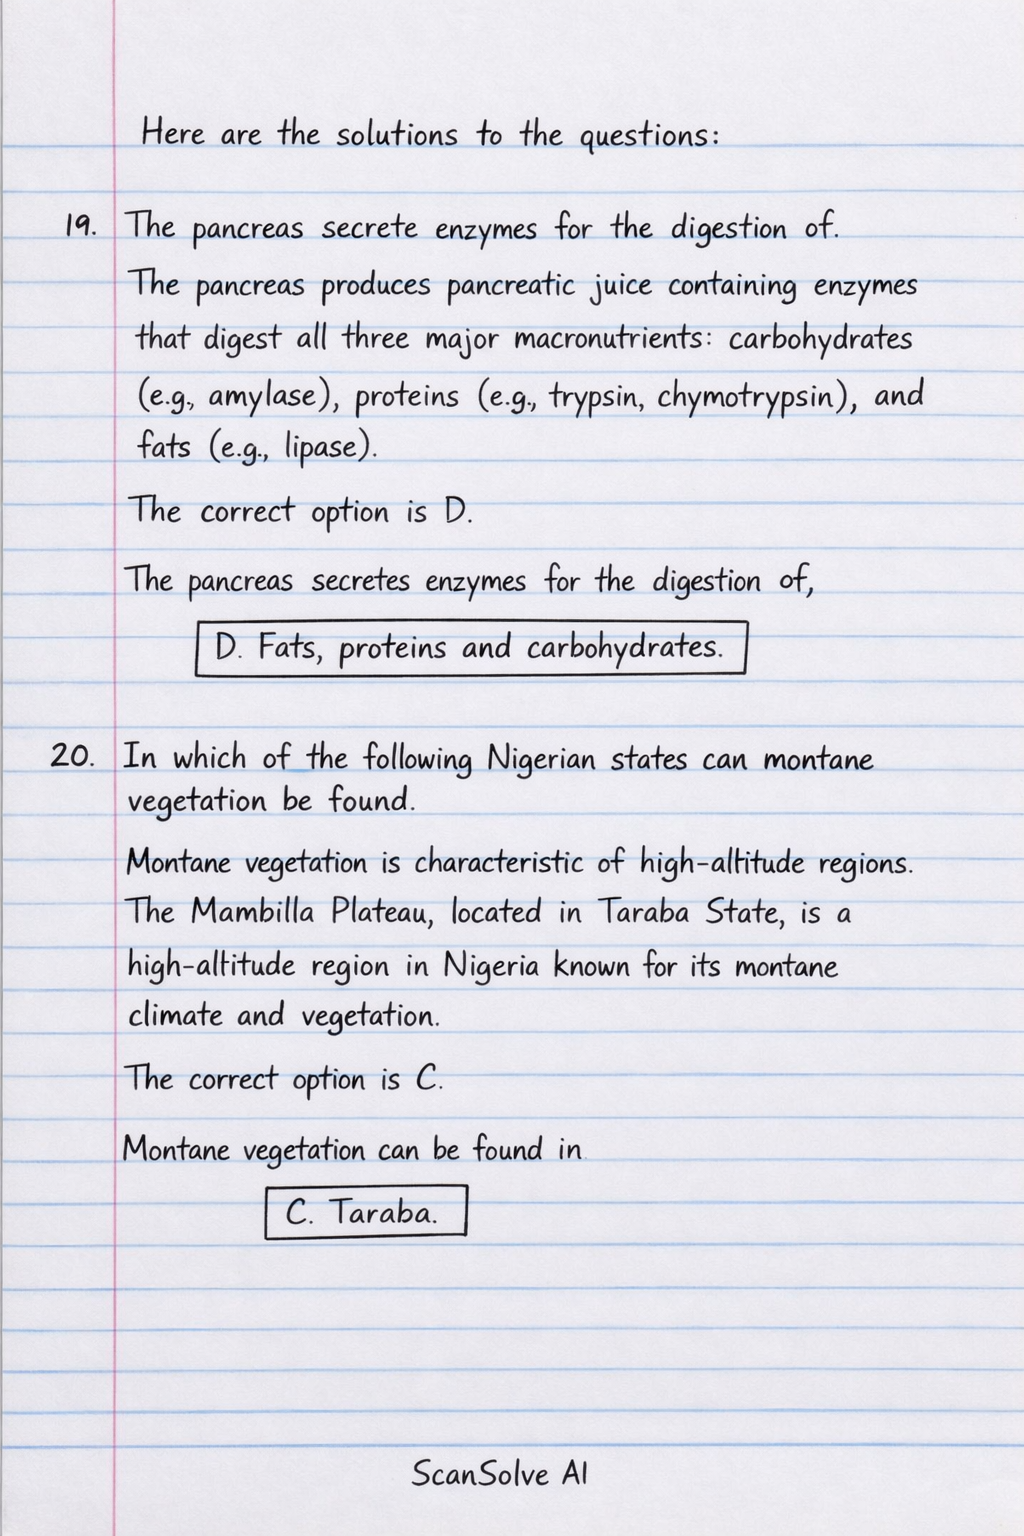 Here are the solutions to the questions:
19. The pancreas secrete enzymes for the digestion of.
The pancreas produces pancreatic juice containing enzymes
that digest all three major macronutrients: carbohydrates
(e.g., amylase), proteins (e.g., trypsin, chymotrypsin), and
fats (e.g., lipase).
The correct option is D.
The pancreas secretes enzymes for the digestion of,
D. Fats, proteins and carbohydrates.
20. In which of the following Nigerian states can montane
vegetation be found.
Montane vegetation is characteristic of high-altitude regions.
The Mambilla Plateau, located in Taraba State, is a
high-altitude region in Nigeria known for its montane
climate and vegetation.
The correct option is C.
Montane vegetation can be found in
C. Taraba.
ScanSolve AI